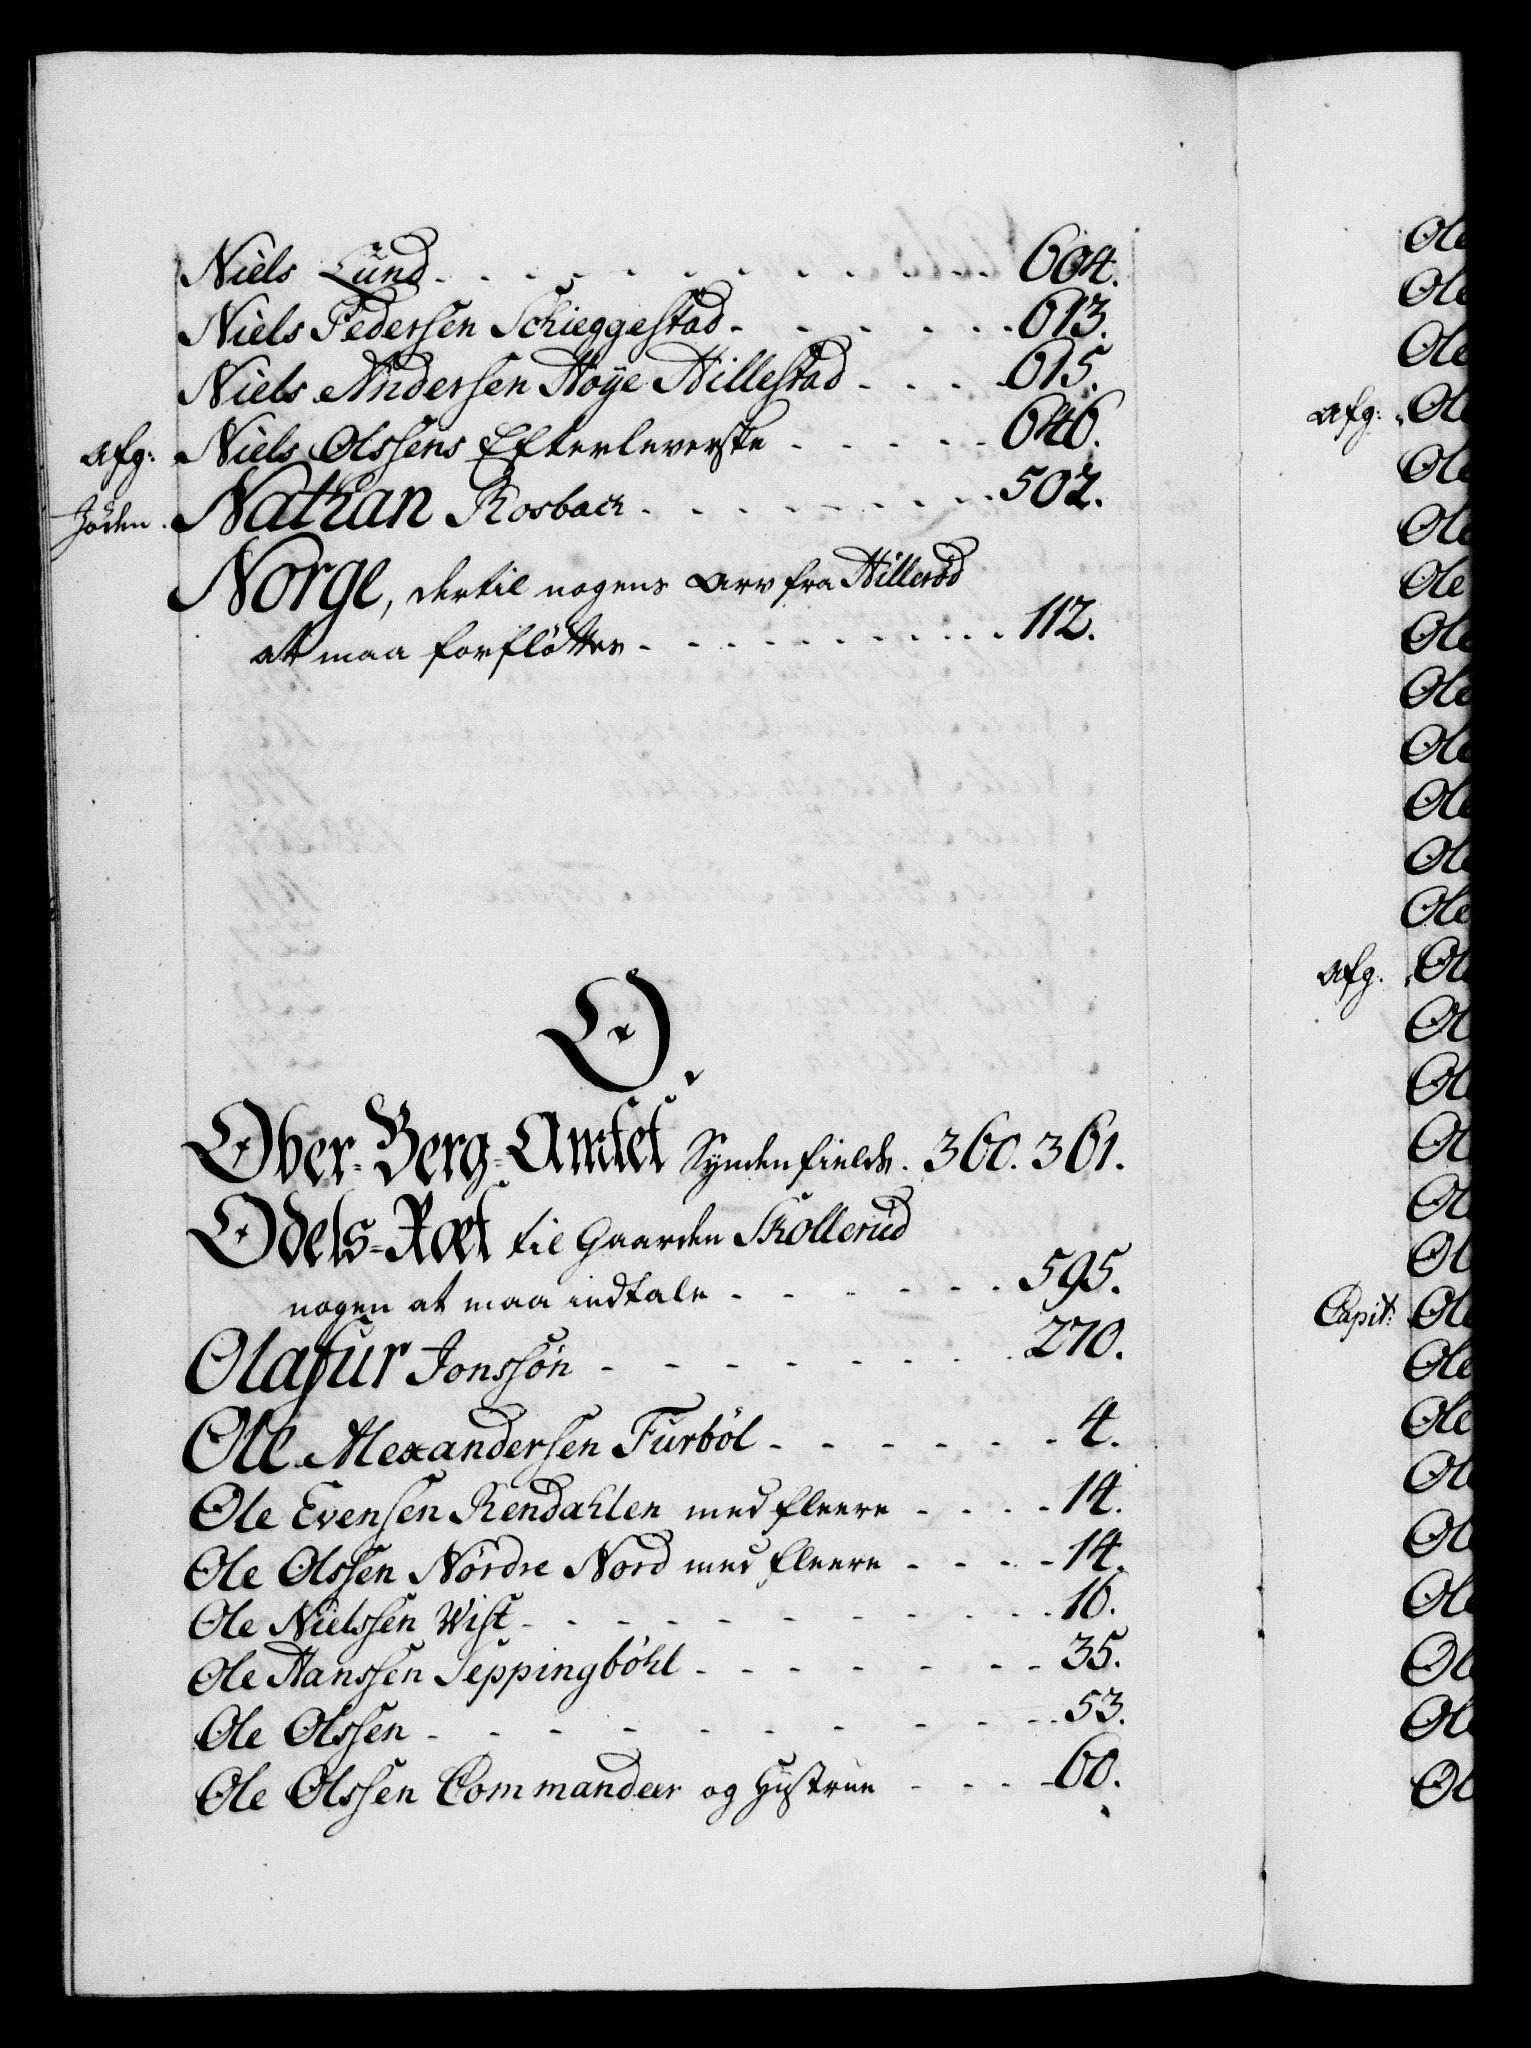 Niels Lund - - - - - - - - - - 604.
Niels Pedersen Schieggestad - - - - - - 613.
Niels Andersen Høye Hillestad - - - 615.
Afg: Niels Olssens Efterleverske - - - - - 646.
Jøden. Nathan Rosbach - - - - - - - - 502.
Norge, dertil nogens Arv fra Hillerød
at maa forflötter - - - - - - - - - - - 112.
O.
Ober-Berg-Amtet Syndenfields. 360. 361.
Odels-Ræt til Gaarden Skollerud
nogen at maa indtale - - - - - - 595.
Olafur Jonssøn - - - - - - - - 270.
Ole Alexandersen Furböl - - - - - - - 4.
Ole Evensen Rendahlen med fleere - - - - 14.
Ole Olssen Nørdre Nord med fleere - - - - 14.
Ole Nielssen Wist - - - - - - - - - - - 16.
Ole Hanssen Seppingböhl - - - - - - - - 35.
Ole Olssen - - - - - - - - - - 53.
Ole Olssen Commandeer og Hustrue - - - - 60.
Ole
Ole
Ole
Afg: Ole
Ole
Ole
Ole
Ole
Ole
Ole
Ole
Ole
Ole
Afg: Ol
Ol
Ol
Ol
Ol
Ol
Capit: Ole
Ole
Ole
Ole
Ol
Ole
Ol
Ol
Ol